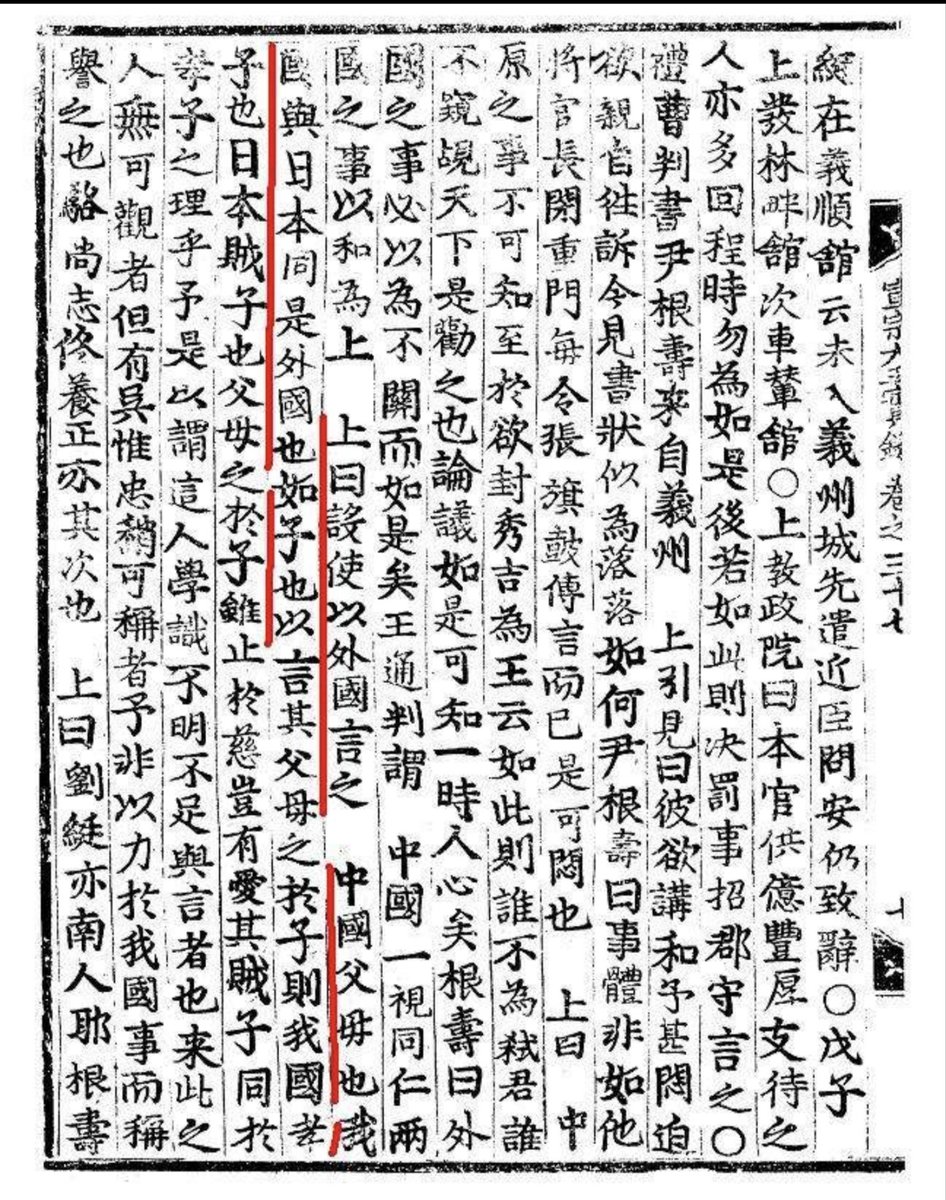 宣宗大王實錄 卷之三十七
綎在義順舘云未入義州城先遣近臣問安仍致辭○戊子
上發林畔舘次車輦舘○上教政院曰本官供億豐厚支待之
人亦多回程時勿為如是後若如此則决罰事招郡守言之○
禮曹判書尹根壽来自義州　上引見曰彼欲講和予甚悶迫
欲親自徃訴今見書狀似為落落如何尹根壽曰事體非如他
將官長閉重門每令張旗鼓傳言而已是可悶也　上曰　中
原之事不可知至於欲封秀吉為王云如此則誰不為弑君誰
不窺覘天下是勸之也論議如是可知一時人心矣根壽曰外
國之事必以為不關而如是矣王通判謂　中國一視同仁兩
國之事以和為上　上曰設使以外國言之　中國父母也我
國與日本同是外國也如子也以言其父母之於子則我國孝
子也日本賊子也父母之於子雖止於慈豈有愛其賊子同於
孝子之理乎予是以謂這人學識不明不足與言者也来此之
人無可觀者但有吳惟忠稍可稱者予非以力於我國事而稱
譽之也駱尚志修養正亦其次也　上曰劉綎亦南人耶根壽